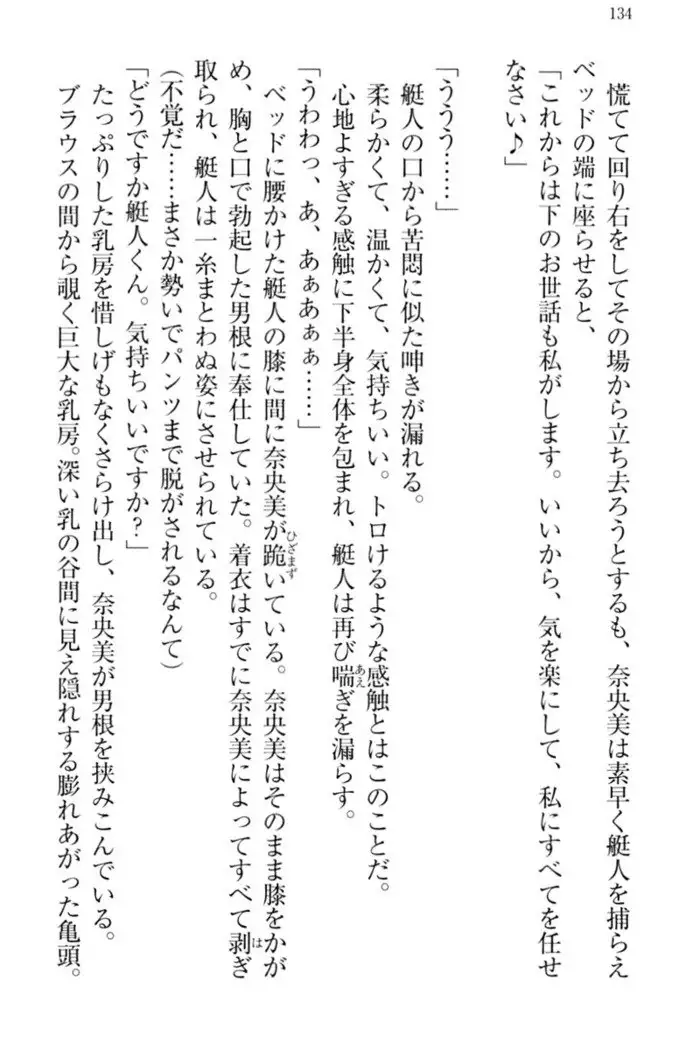 134
慌てて回り右をしてその場から立ち去ろうとするも、奈央美は素早く艇人を捕らえ
ベッドの端に座らせると、
「これからは下のお世話も私がします。いいから、気を楽にして、私にすべてを任せ
なさい♪」
「ううう……」
艇人の口から苦悶に似た呻きが漏れる。
柔らかくて、温かくて、気持ちいい。トロけるような感触とはこのことだ。
心地よすぎる感触に下半身全体を包まれ、艇人は再び喘ぎを漏らす。
「うわわっ、あ、あぁあぁぁ……」
ベッドに腰かけた艇人の膝に間に奈央美が跪いている。奈央美はそのまま膝をかが
め、胸と口で勃起した男根に奉仕していた。着衣はすでに奈央美によってすべて剥ぎ
取られ、艇人は一糸まとわぬ姿にさせられている。
(不覚だ……まさか勢いでパンツまで脱がされるなんて)
「どうですか艇人くん。気持ちいいですか?」
たっぷりした乳房を惜しげもなくさらけ出し、奈央美が男根を挟みこんでいる。
ブラウスの間から覗く巨大な乳房。深い乳の谷間に見え隠れする膨れあがった亀頭。